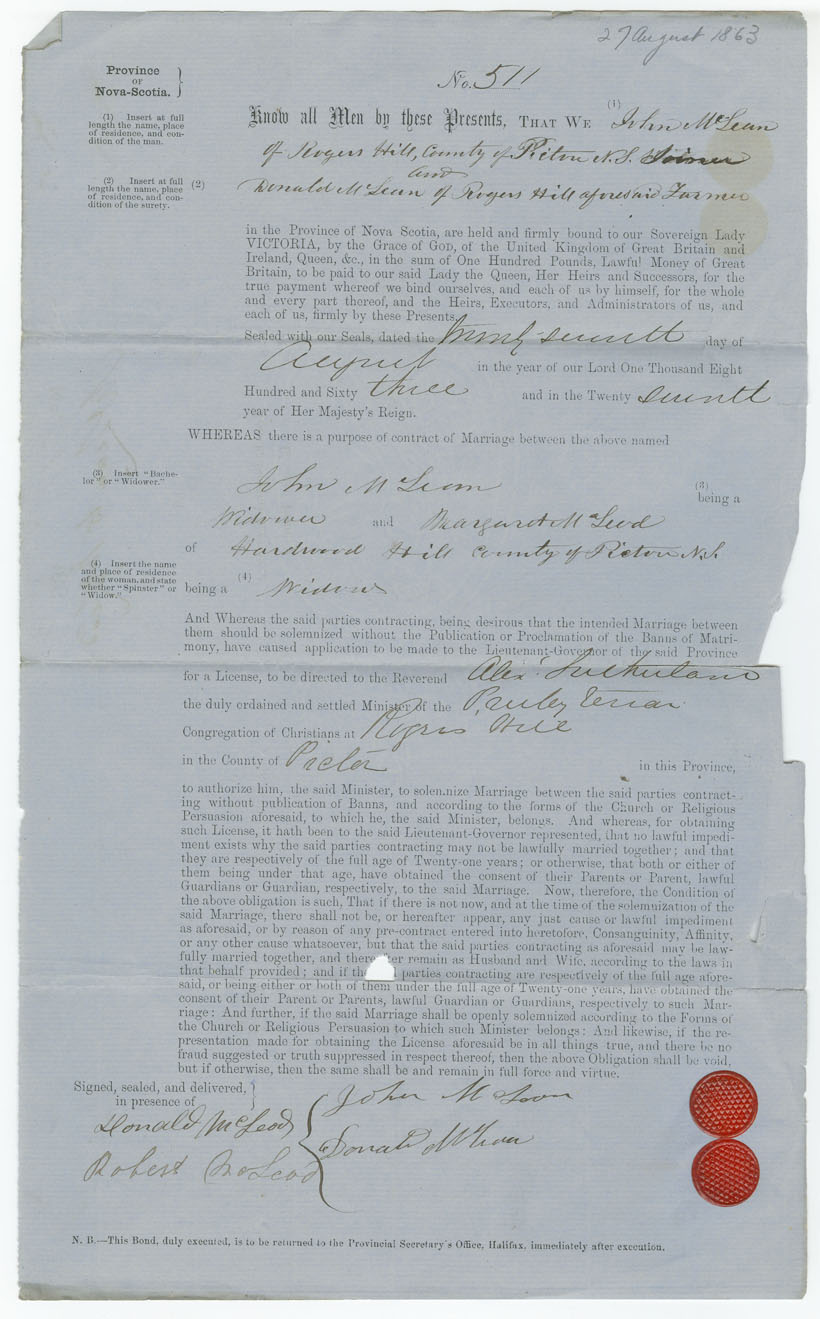 27 August 1863
Province
OF
Nova-Scotia.
No. 511
(1) Insert at full
length the name, place
of residence, and con-
dition of the man.
Know all Men by these Presents, THAT WE (1) John McLean
of Rogers Hill, County of Picton N.S. Joiner
and
(2) Insert at full
length the name, place
of residence, and con-
dition of the surety.
(2) Donald McLean of Rogers Hill aforesaid Farmer
in the Province of Nova Scotia, are held and firmly bound to our Sovereign Lady
VICTORIA, by the Grace of GOD, of the United Kingdom of Great Britain and
Ireland, Queen, &c., in the sum of One Hundred Pounds, Lawful Money of Great
Britain, to be paid to our said Lady the Queen, Her Heirs and Successors, for the
true payment whereof we bind ourselves, and each of us by himself, for the whole
and every part thereof, and the Heirs, Executors, and Administrators of us, and
each of us, firmly by these Presents.
Sealed with our Seals, dated the twenty seventh day of
August in the year of our Lord One Thousand Eight
Hundred and Sixty three and in the Twenty seventh
year of Her Majesty's Reign.
WHEREAS there is a purpose of contract of Marriage between the above named
(3) Insert "Bache-
lor" or "Widower."
John McLean (3)
being a
Widower and Margaret McLeod
of Hardwood Hill County of Picton N.S.
(4) Insert the name
and place of residence
of the woman, and state
whether "Spinster" or
"Widow."
being a (4) Widow
And Whereas the said parties contracting, being desirous that the intended Marriage between
them should be solemnized without the Publication or Proclamation of the Banns of Matri-
mony, have caused application to be made to the Lieutenant-Governor of the said Province
for a License, to be directed to the Reverend Alexr. Sutherland
the duly ordained and settled Minister of the Presbyterian
Congregation of Christians at Rogers Hill
in the County of Picton in this Province,
to authorize him, the said Minister, to solemnize Marriage between the said parties contract-
ing without publication of Banns, and according to the forms of the Church or Religious
Persuasion aforesaid, to which he, the said Minister, belongs. And whereas, for obtaining
such License, it hath been to the said Lieutenant-Governor represented, that no lawful impedi-
ment exists why the said parties contracting may not be lawfully married together; and that
they are respectively of the full age of Twenty-one years; or otherwise, that both or either of
them being under that age, have obtained the consent of their Parents or Parent, lawful
Guardians or Guardian, respectively, to the said Marriage. Now, therefore, the Condition of
the above obligation is such, That if there is not now, and at the time of the solemnization of the
said Marriage, there shall not be, or hereafter appear, any just cause or lawful impediment
as aforesaid, or by reason of any pre-contract entered into heretofore, Consanguinity, Affinity,
or any other cause whatsoever, but that the said parties contracting as aforesaid may be law-
fully married together, and there er remain as Husband and Wife, according to the laws in
that behalf provided; and if th parties contracting are respectively of the full age afore-
said, or being either or both of them under the full age of Twenty-one years, have obtained the
consent of their Parent or Parents, lawful Guardian or Guardians, respectively to such Mar-
riage: And further, if the said Marriage shall be openly solemnized according to the Forms of
the Church or Religious Persuasion to which such Minister belongs: And likewise, if the re-
presentation made for obtaining the License aforesaid be in all things true, and there be no
fraud suggested or truth suppressed in respect thereof, then the above Obligation shall be void,
but if otherwise, then the same shall be and remain in full force and virtue.
Signed, sealed, and delivered,
in presence of
John McLean
Donald McLeod
Donald McLean
Robert McLeod
N. B.—This Bond, duly executed, is to be returned to the Provincial Secretary's Office, Halifax, immediately after execution.